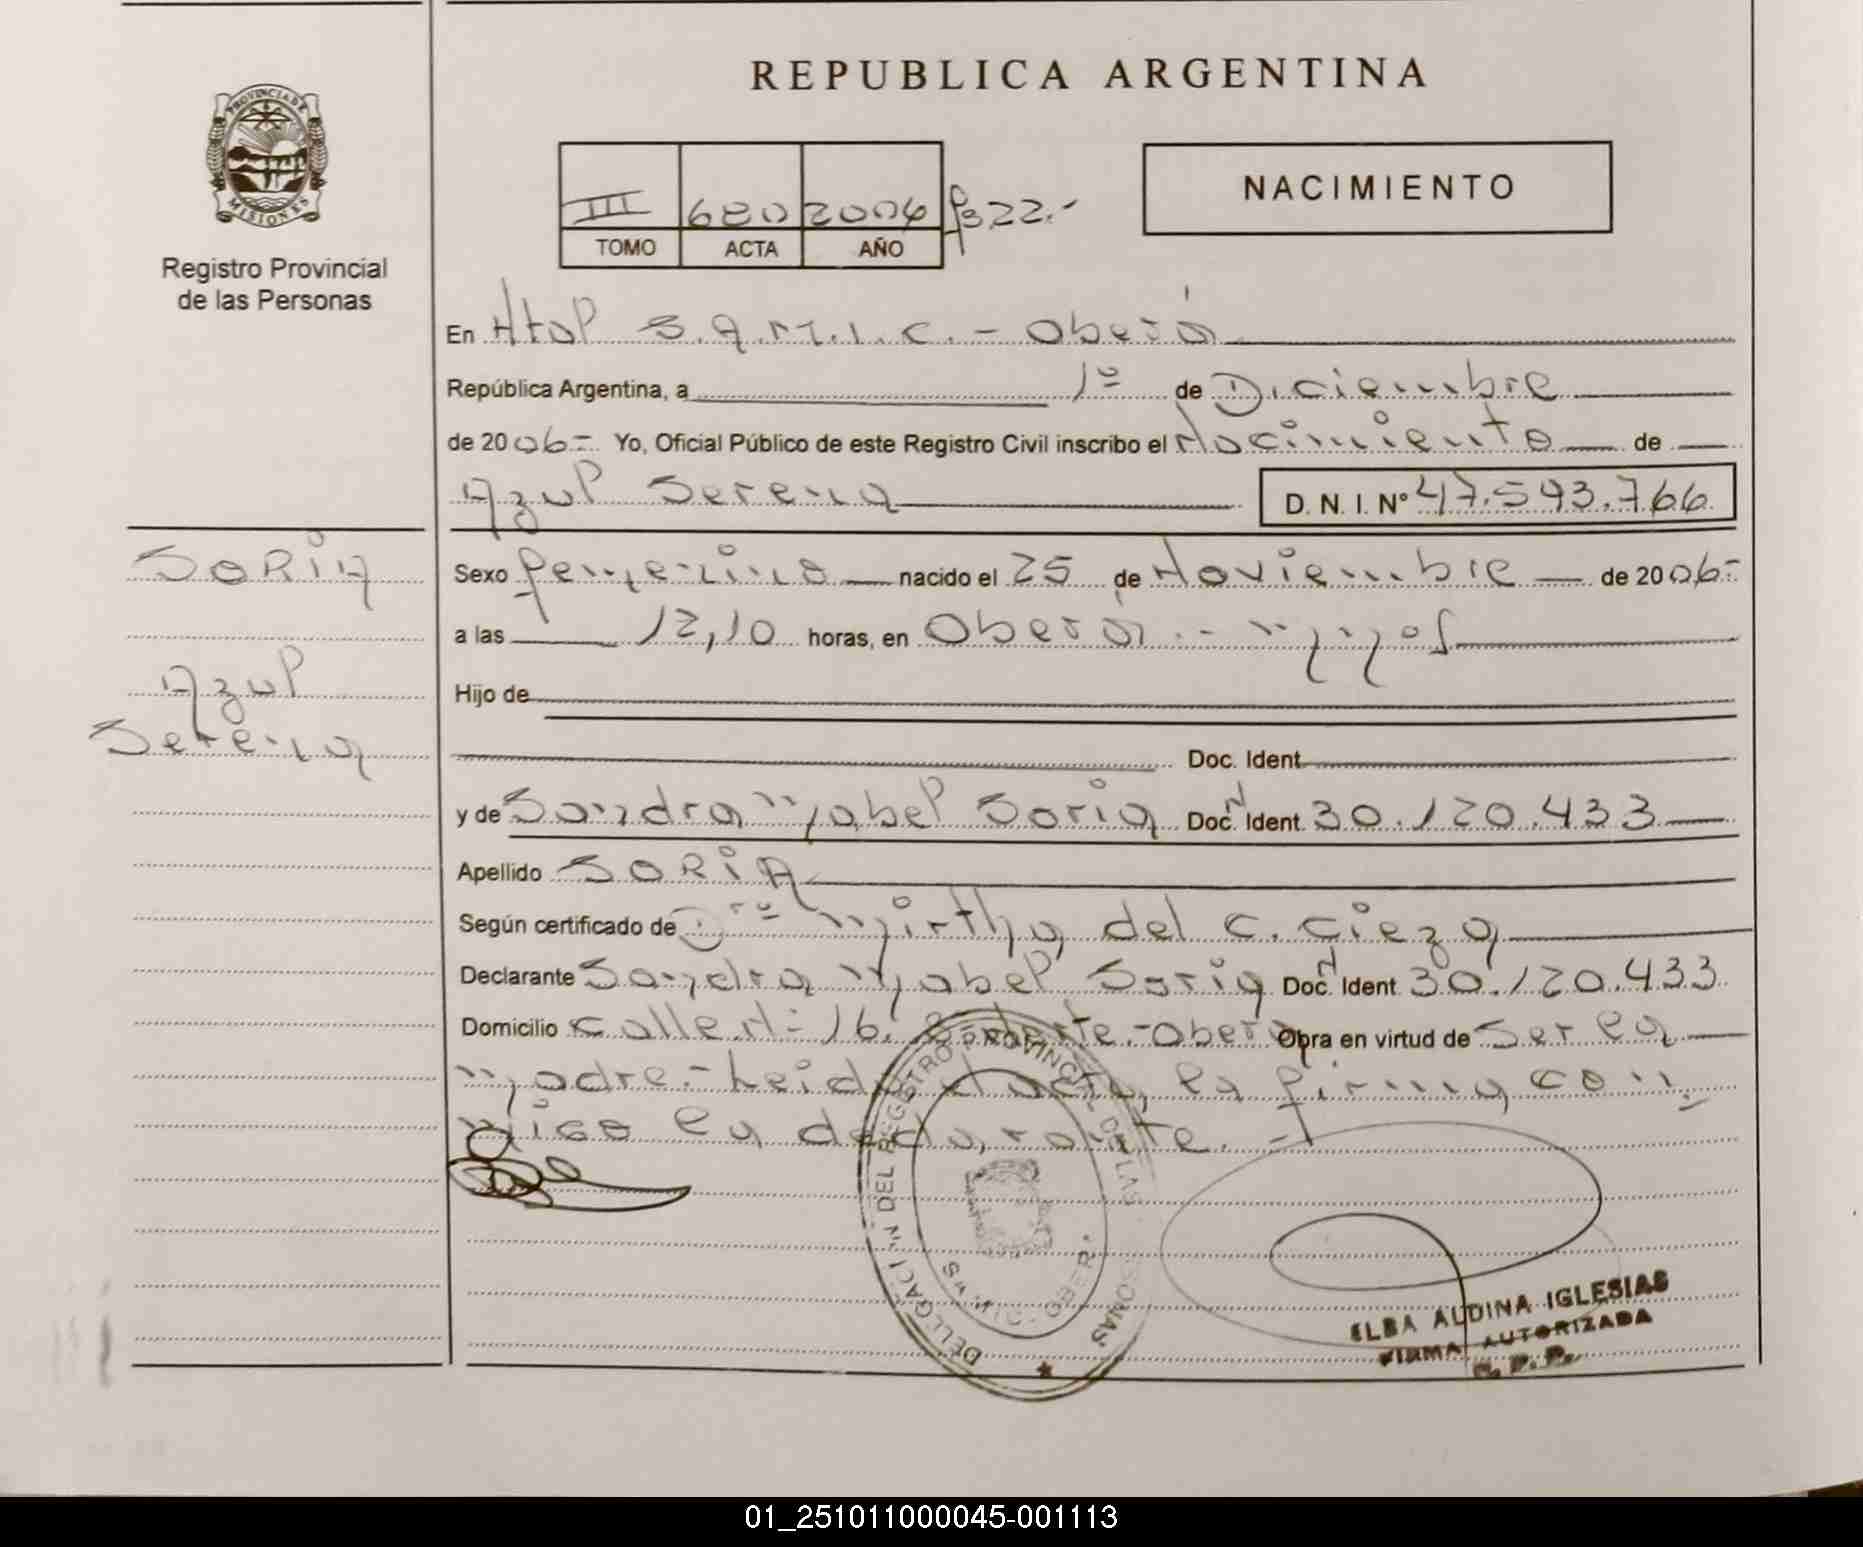 REPUBLICA ARGENTINA
PROVINCIA DE
MISIONES
Registro Provincial
de las Personas
III 680 2006 fº322.-
TOMO ACTA AÑO
NACIMIENTO
En Htal S.A.M.I.C. - Oberá
República Argentina, a 1º de Diciembre
de 2006- Yo, Oficial Público de este Registro Civil inscribo el Nacimiento de
Azul Serena D. N. I. Nº 47.593.766
SORIA
Azul
Serena
Sexo femenino nacido el 25 de Noviembre de 2006-
a las 12,10 horas, en Oberá - Mnes
Hijo de
Doc. Ident.
y de Sandra Mabel Soria Doc. N Ident. 30.120.433
Apellido SORIA
Según certificado de Drª Mirtha del C. Cieza
Declarante Sandra Mabel Soria Doc. N Ident. 30.120.433
Domicilio Calle Nº 16, Oberá Obra en virtud de Ser la
madre.- Leida el acta, la firma con
migo la declarante.-
DELEGACION DEL REGISTRO PROVINCIAL DE LAS PERSONAS
OBERA
ELBA ALDINA IGLESIAS
FIRMA AUTORIZADA
R. P. P.
01_251011000045-001113